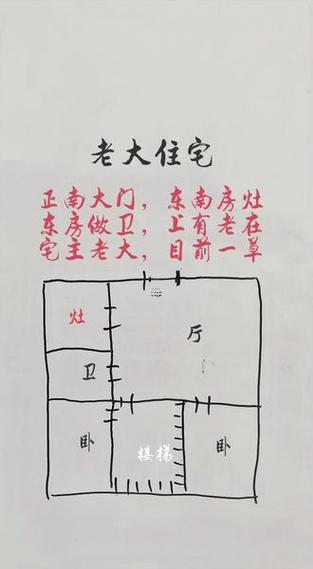 老大住宅
正南大门，东南房灶
东房做卫，上有老在
宅主老大，日前一草
灶
厅
卫
卧
楼梯
卧